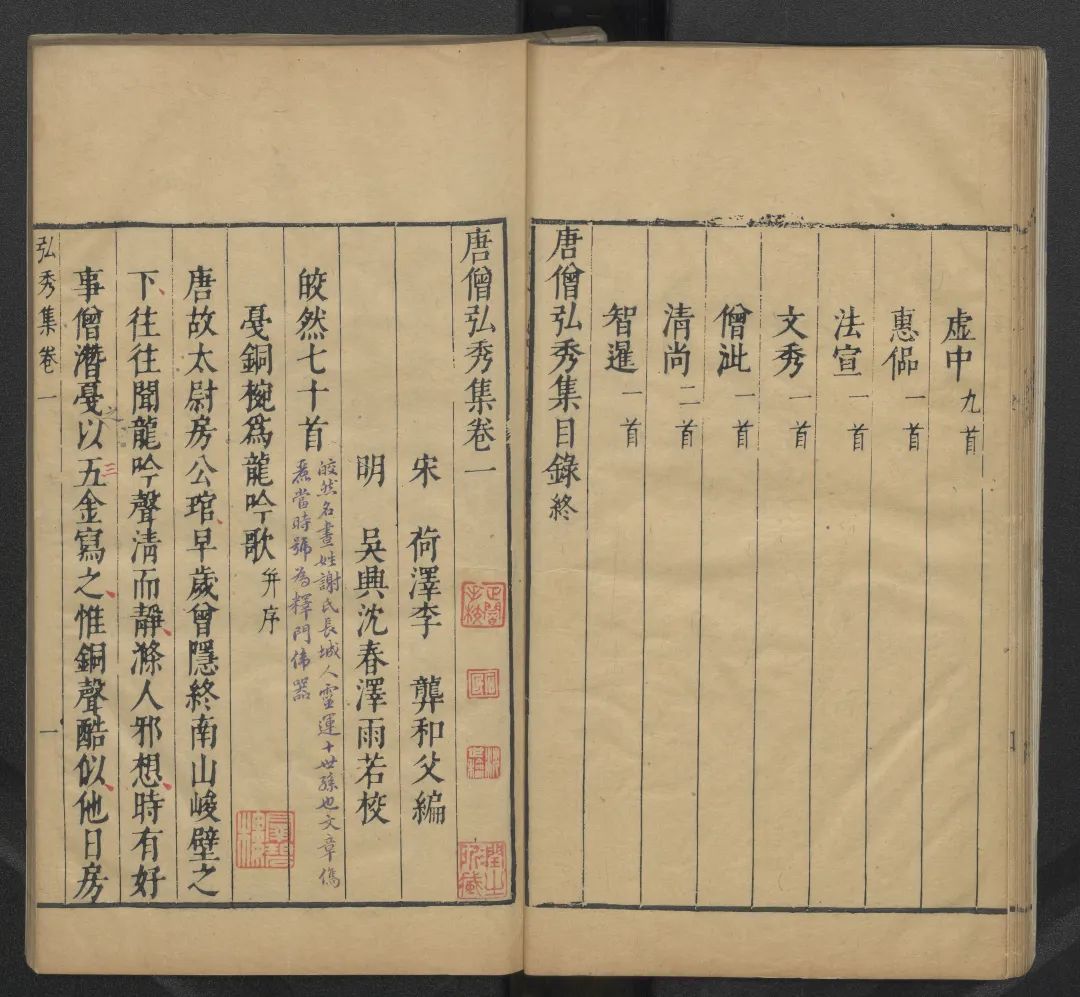 虛中 九首
惠偘 一首
法宣 一首
文秀 一首
僧泚 一首
清尚 二首
智暹 一首
唐僧弘秀集目錄終
唐僧弘秀集卷一
宋 荷澤李 龏和父編
明 吳興沈春澤雨若校
皎然七十首
皎然名晝姓謝氏長城人靈運十世孫也文章儁
麗當時號為釋門偉器
戞銅椀爲龍吟歌 并序
唐故太尉房公琯早歲曾隱終南山峻壁之
下往往聞龍吟聲清而靜滌人邪想時有好
事僧潛戞以五金寫之惟銅聲酷似他日房
之
三
弘秀集卷一
一